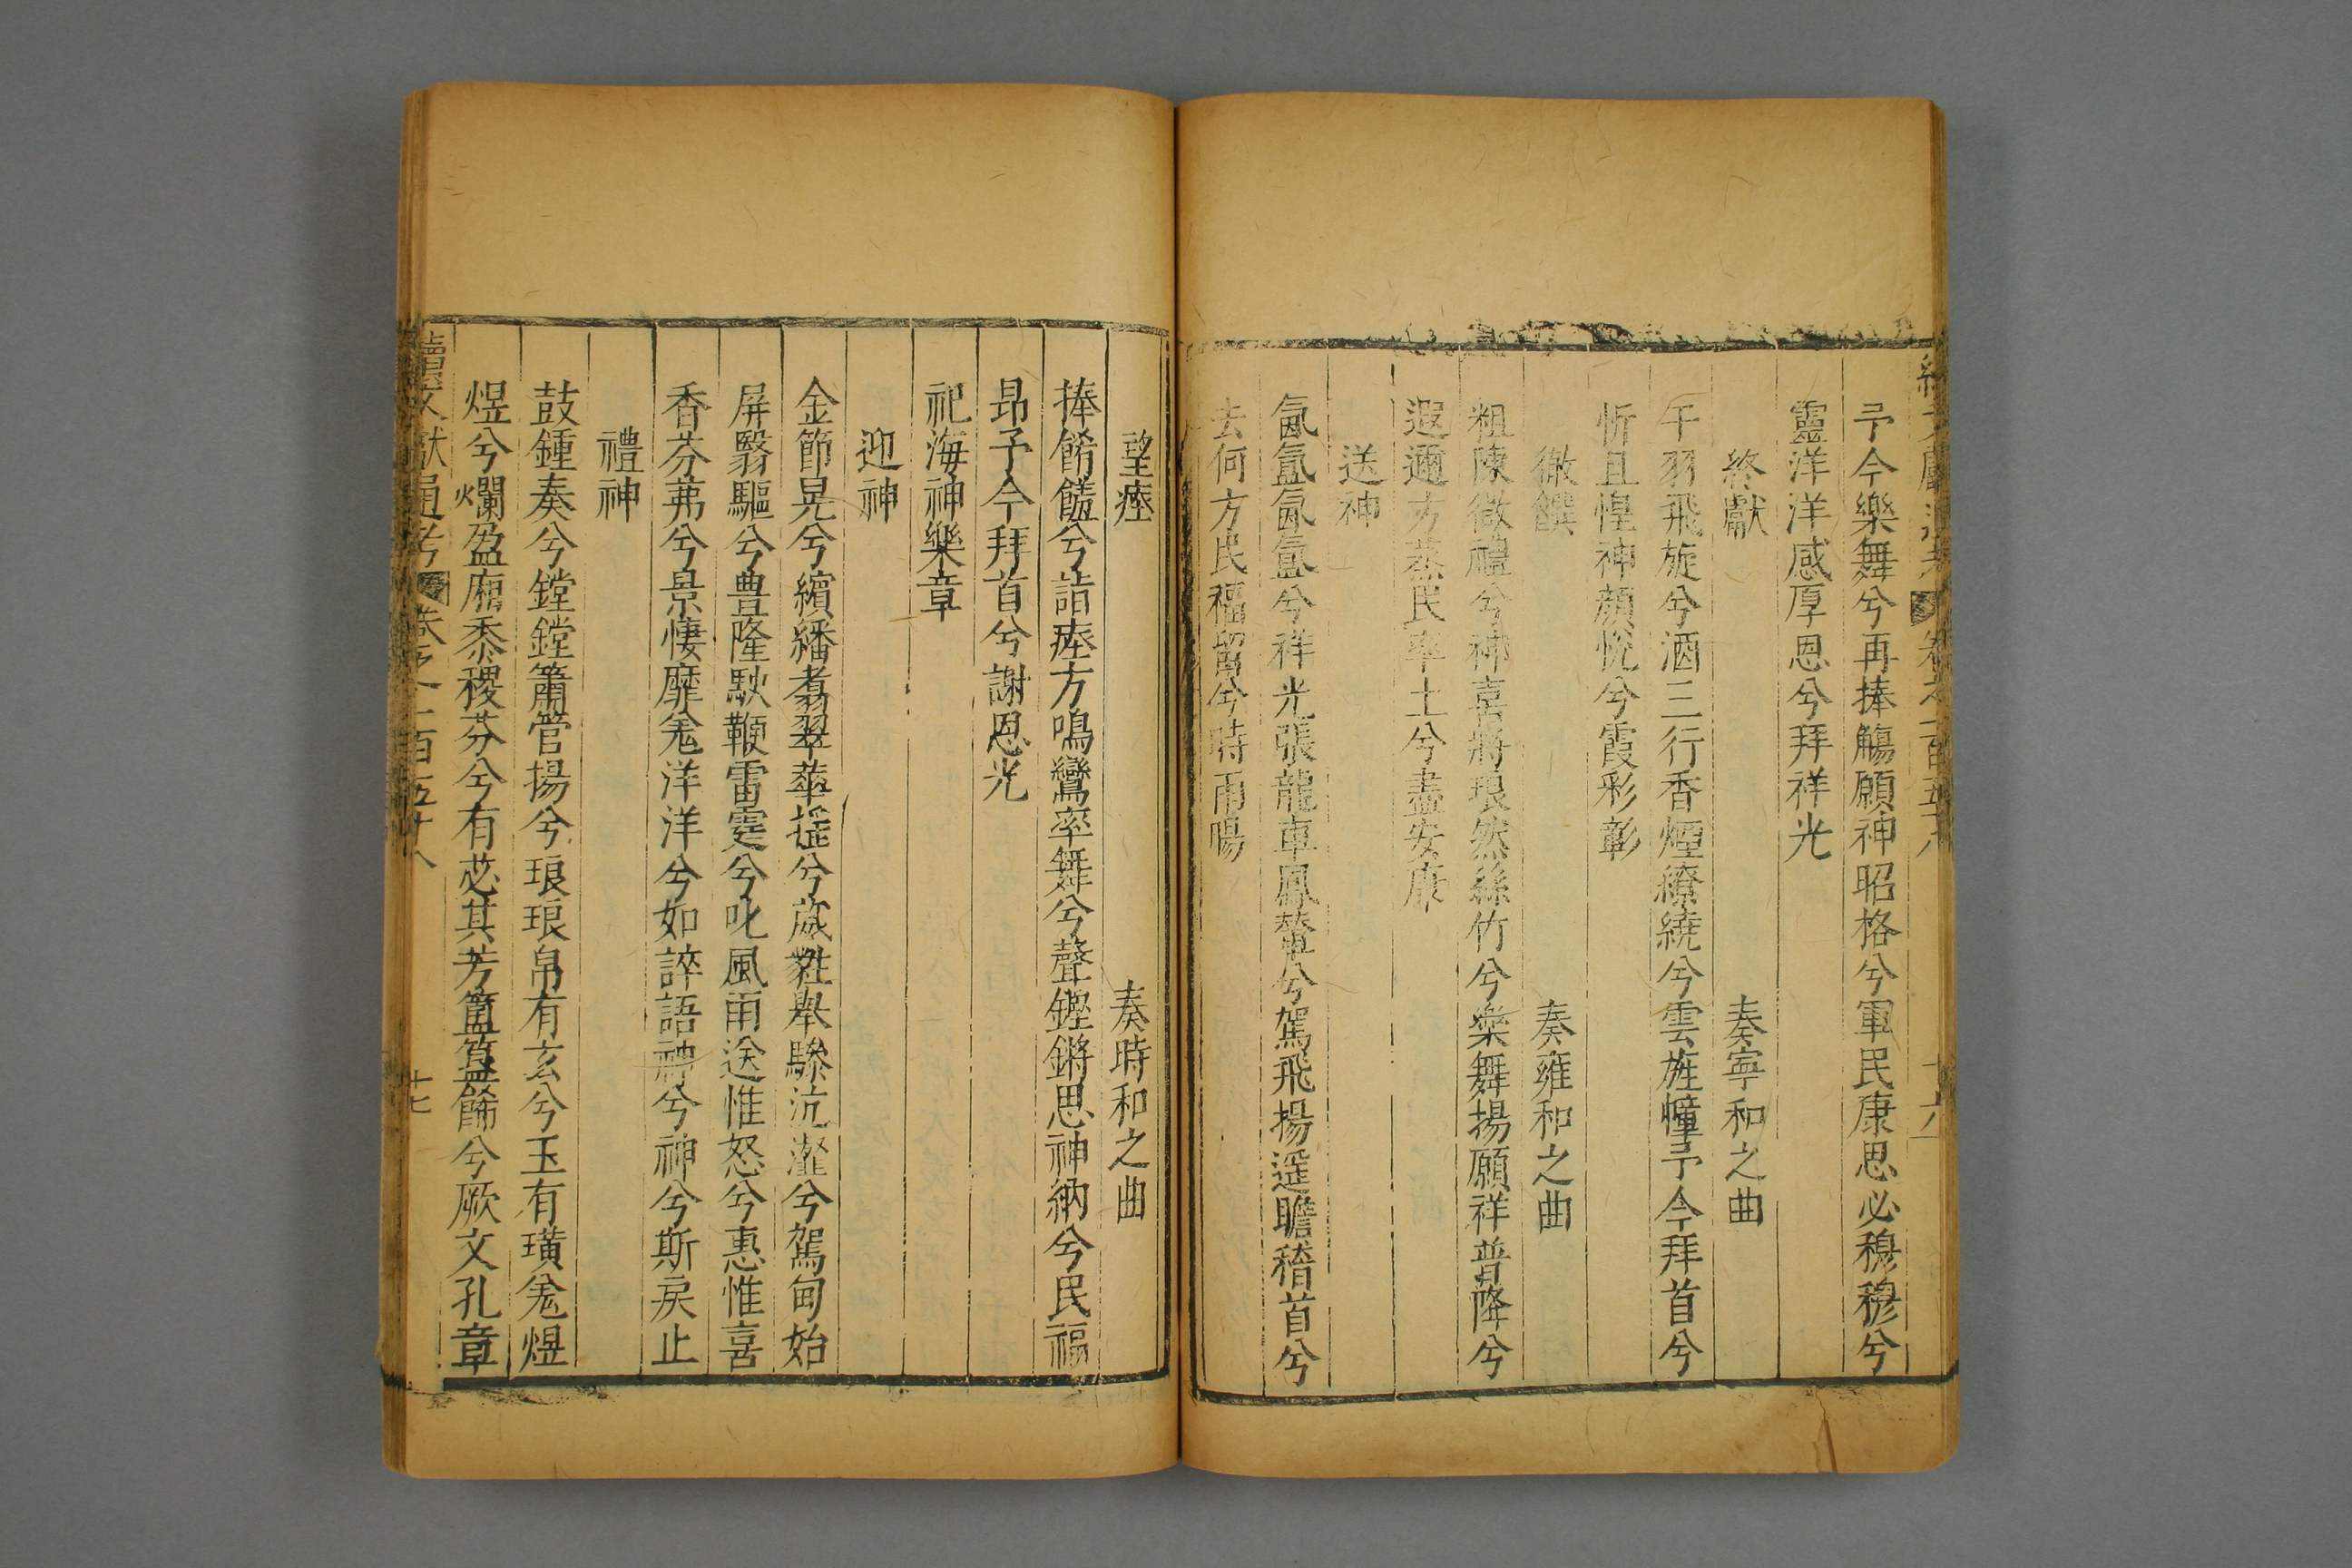 予今樂舞兮再捧觴願神昭格兮軍民康思必穆穆兮
靈洋洋感厚恩兮拜祥光
終獻 奏寧和之曲
干羽飛旋兮酒三行香煙繚繞兮雲旌幢予今拜首兮
忻且惶神顏悅兮霞彩彰
徹饌 奏雍和之曲
粗陳微禮兮神喜將琅然絲竹兮樂舞揚願祥普降兮
遐邇方蒸民率土兮盡安康
送神
氤氳氤氳兮祥光張龍車鳳輦兮駕飛揚遥瞻稽首兮
去何方民福留兮時雨暘
望瘞 奏時和之曲
捧餚饈兮詣瘞方鳴鸞率舞兮聲鏗鏘思神納兮民福
昂予今拜首兮謝恩光
祀海神樂章
迎神
金節晃兮繽繙翥翠華揺兮葳甤舉驂沆瀣兮駕甸始
屏翳驅兮豊隆馭鞭雷霆兮叱風雨送惟怒兮惠惟喜
香芬茀兮景悽靡炰洋洋兮如誶語神兮神兮斯戾止
禮神
鼓鍾奏兮鏜鏜簫管揚兮琅琅帛有玄兮玉有璜炰煜
煜兮爛盈廂黍稷芬兮有苾其芳簠簋餙兮厥文孔章
續文獻通考 卷之一百五十八 十七